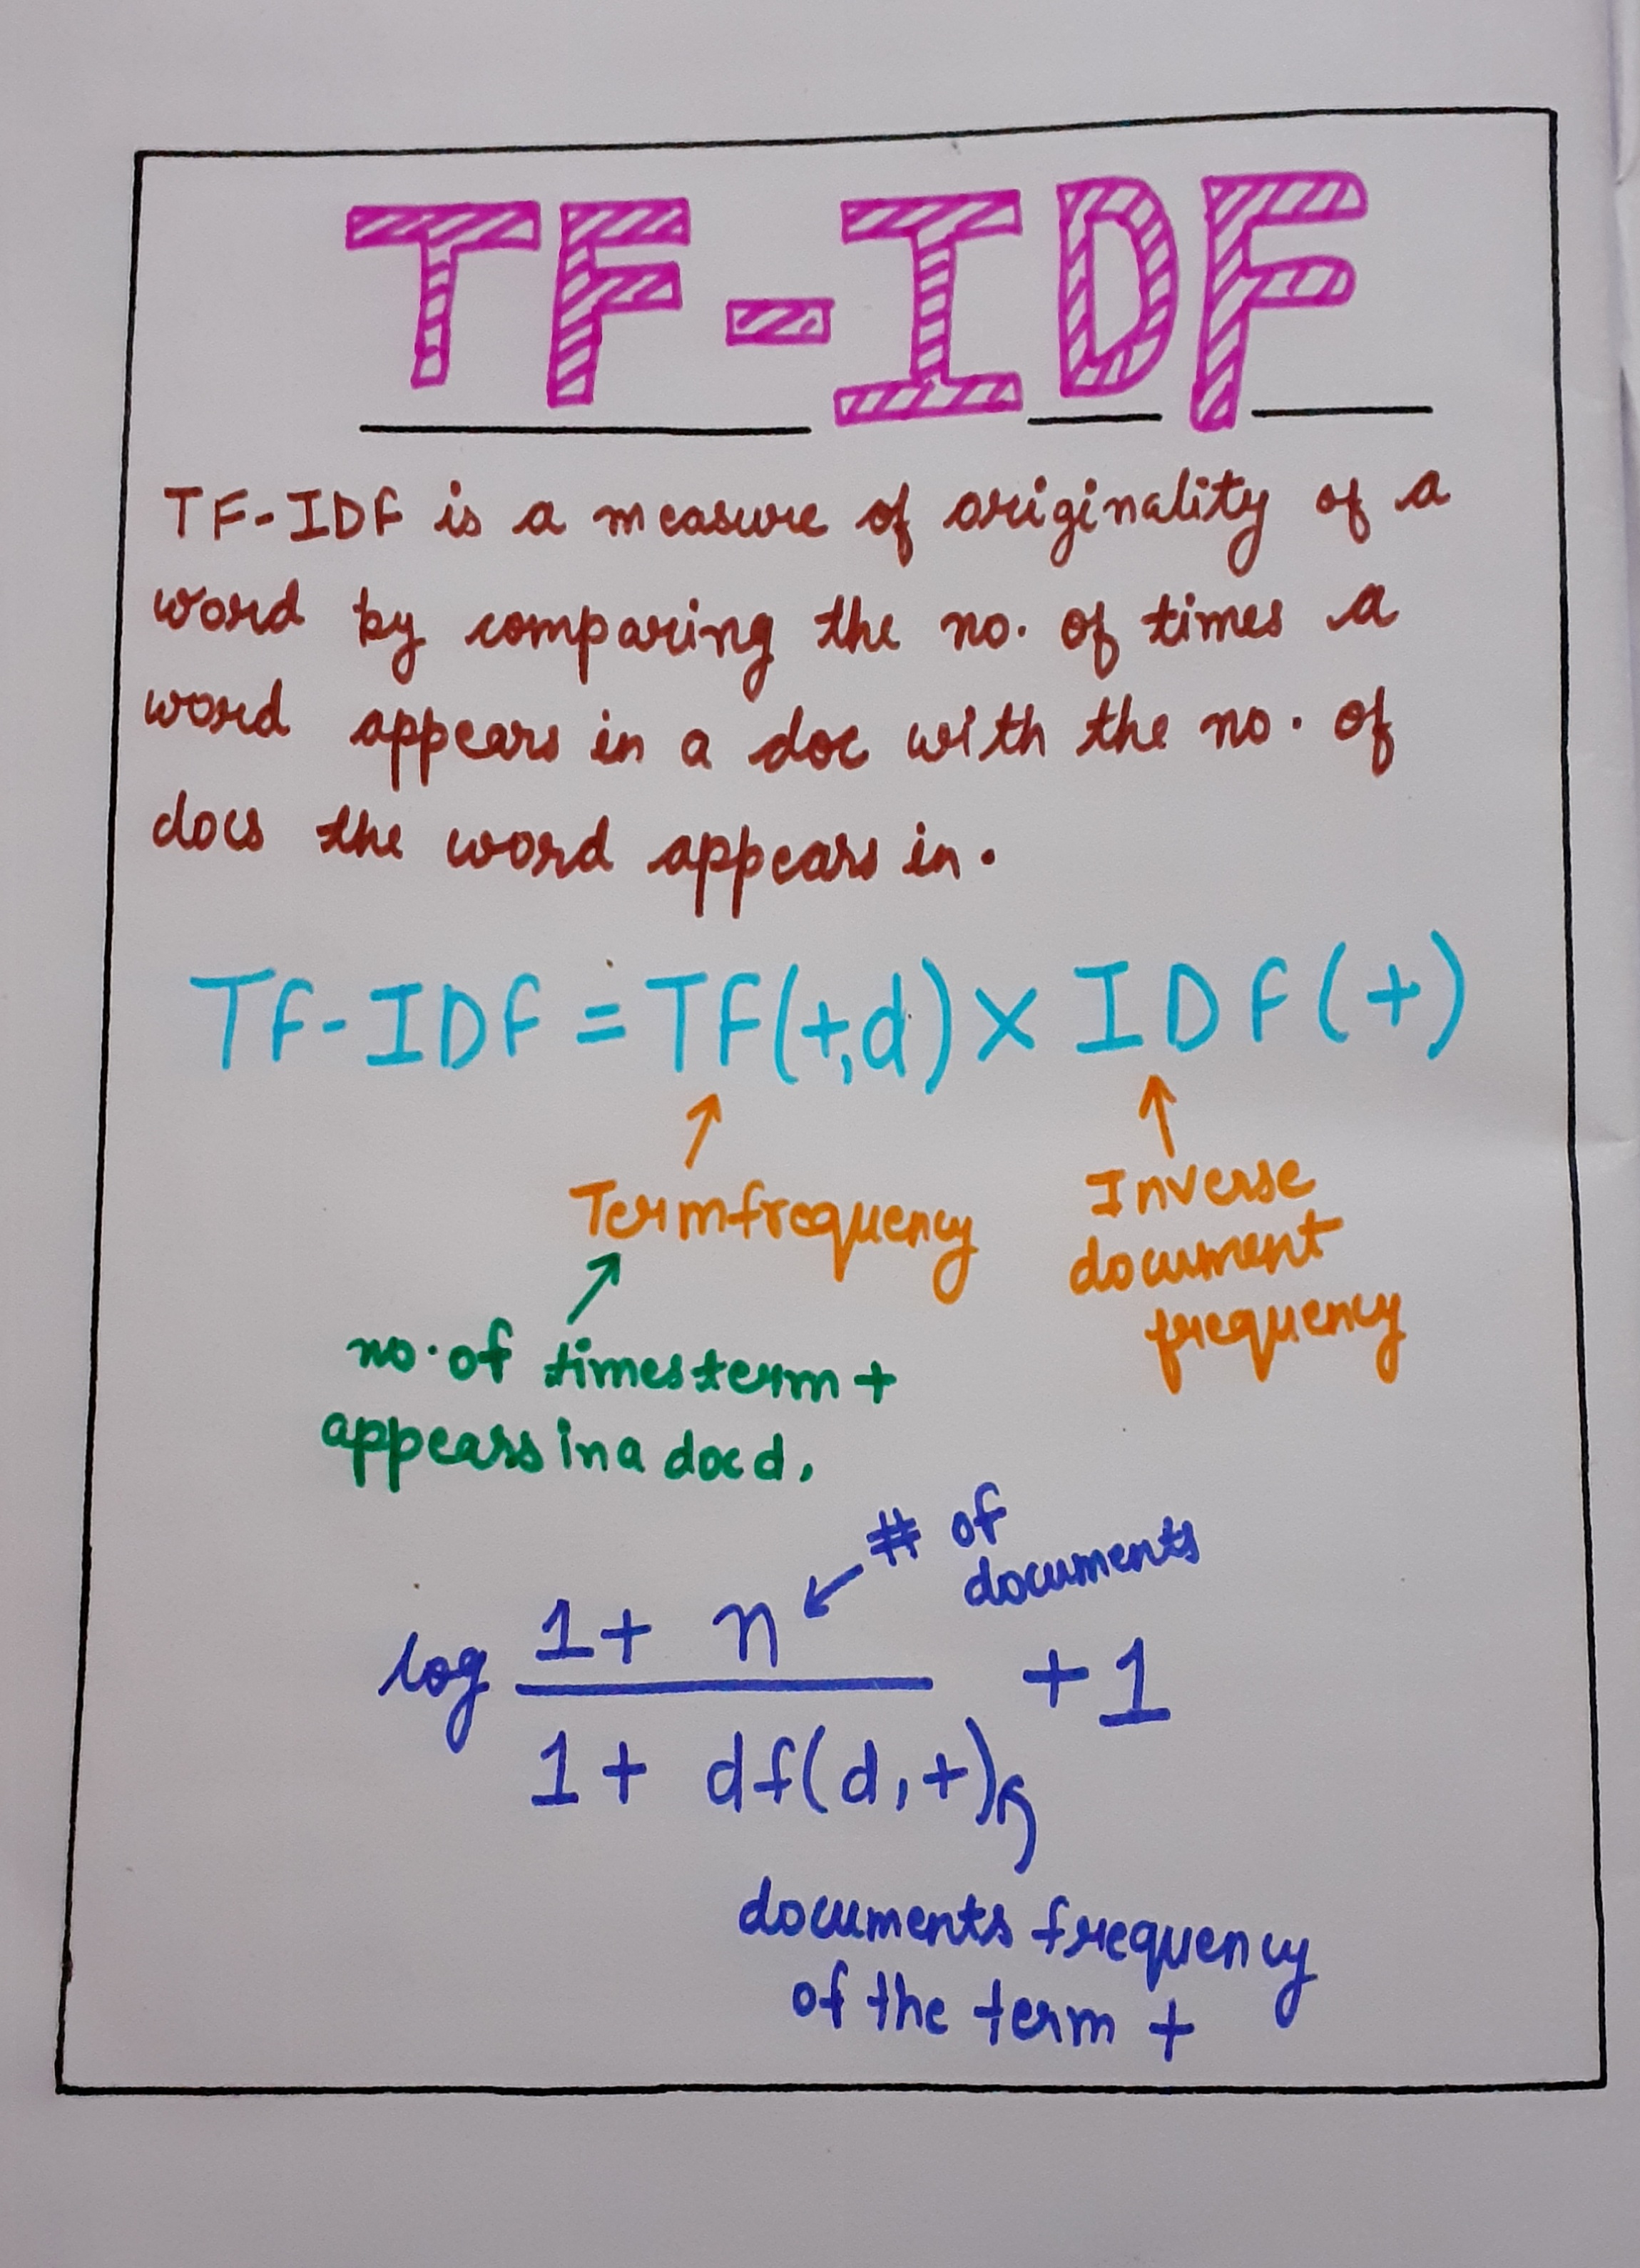 TF-IDF
TF-IDF is a measure of originality of a
word by comparing the no. of times a
word appears in a doc with the no. of
docs the word appears in.
TF-IDF = TF(t,d) × IDF(t)
Term frequency
Inverse
document
frequency
no. of times term t
appears in a doc d.
# of
documents
log (1 + n) / (1 + df(d,t)) + 1
documents frequency
of the term t